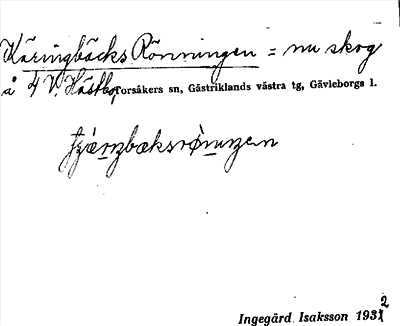 Käringbäcks Rönningen = nu skog
å 4 V. Hästbo, Torsåkers sn, Gästriklands västra tg, Gävleborgs l.
Ingegärd Isaksson 1932